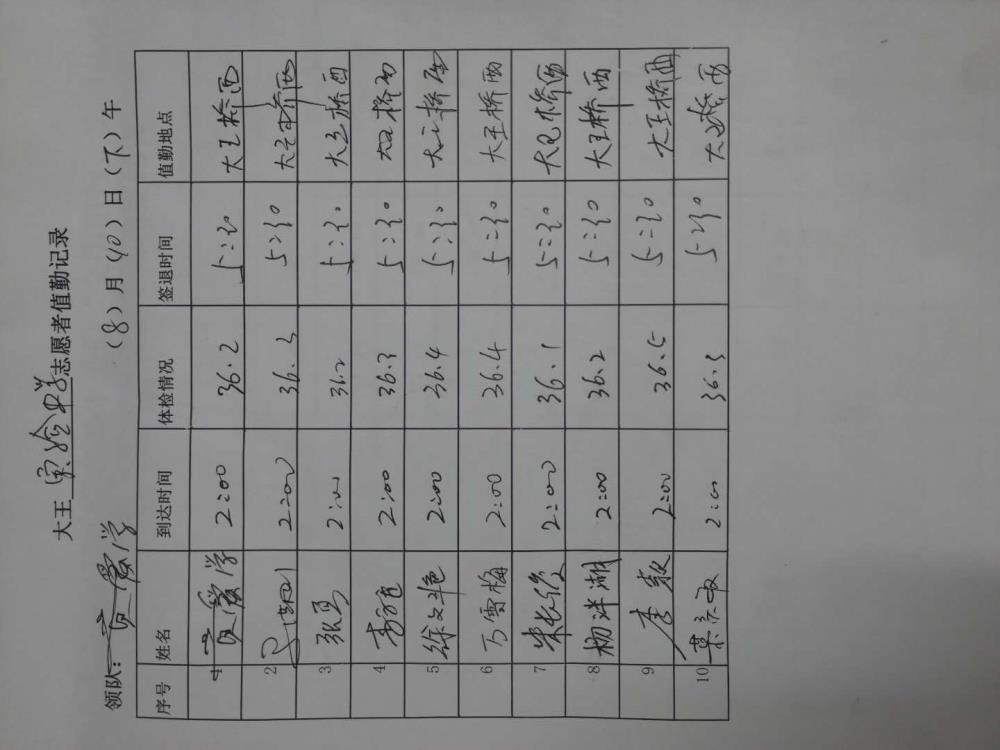 大王实验中学志愿者值勤记录
领队: 爱学 (8)月(10)日(下)午
序号 姓名 到达时间 体检情况 签退时间 值勤地点
1 爱学 2:00 36.2 5:30 大王桥西
2 2:00 36.3 5:30 大王桥西
3 张 2:00 36.2 5:30 大王桥西
4 李 2:00 36.3 5:30 大王桥西
5 徐文艳 2:00 36.4 5:30 大王桥西
6 万雪梅 2:00 36.4 5:30 大王桥西
7 朱长俊 2:00 36.1 5:30 大王桥西
8 杨洋湖 2:00 36.2 5:30 大王桥西
9 李毅 2:00 36.5 5:30 大王桥西
10 2:00 36.3 5:30 大王桥西